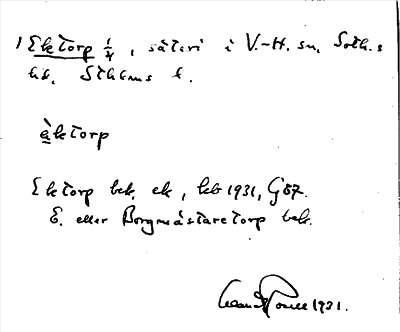 1) Ektorp 1/4, säteri i V.-H. sn, Soth.s
hd, Sthlms l.
àktorp
Ektorp bek. ek, kb 1931, GB7.
E. eller Borgmästaretorp bek.
1931.